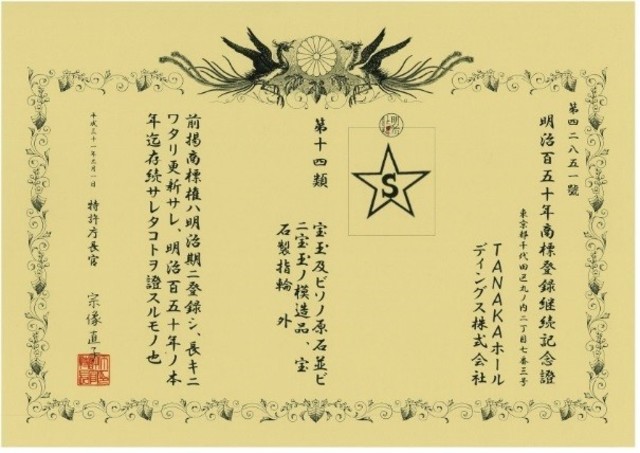 第四二八五一號
明治百五十年商標登録継続記念證
東京都千代田区丸ノ内二丁目七番三号
TANAKAホール
ディングス株式会社
S
第十四類
宝玉及ビソノ原石並ビ
ニ宝玉ノ模造品、宝
石製指輪 外
前掲商標権ハ明治期ニ登録シ、長キニ
ワタリ更新サレ、明治百五十年ノ本
年迄存続サレタコトヲ證スルモノ也
特許庁長官
宗像直子